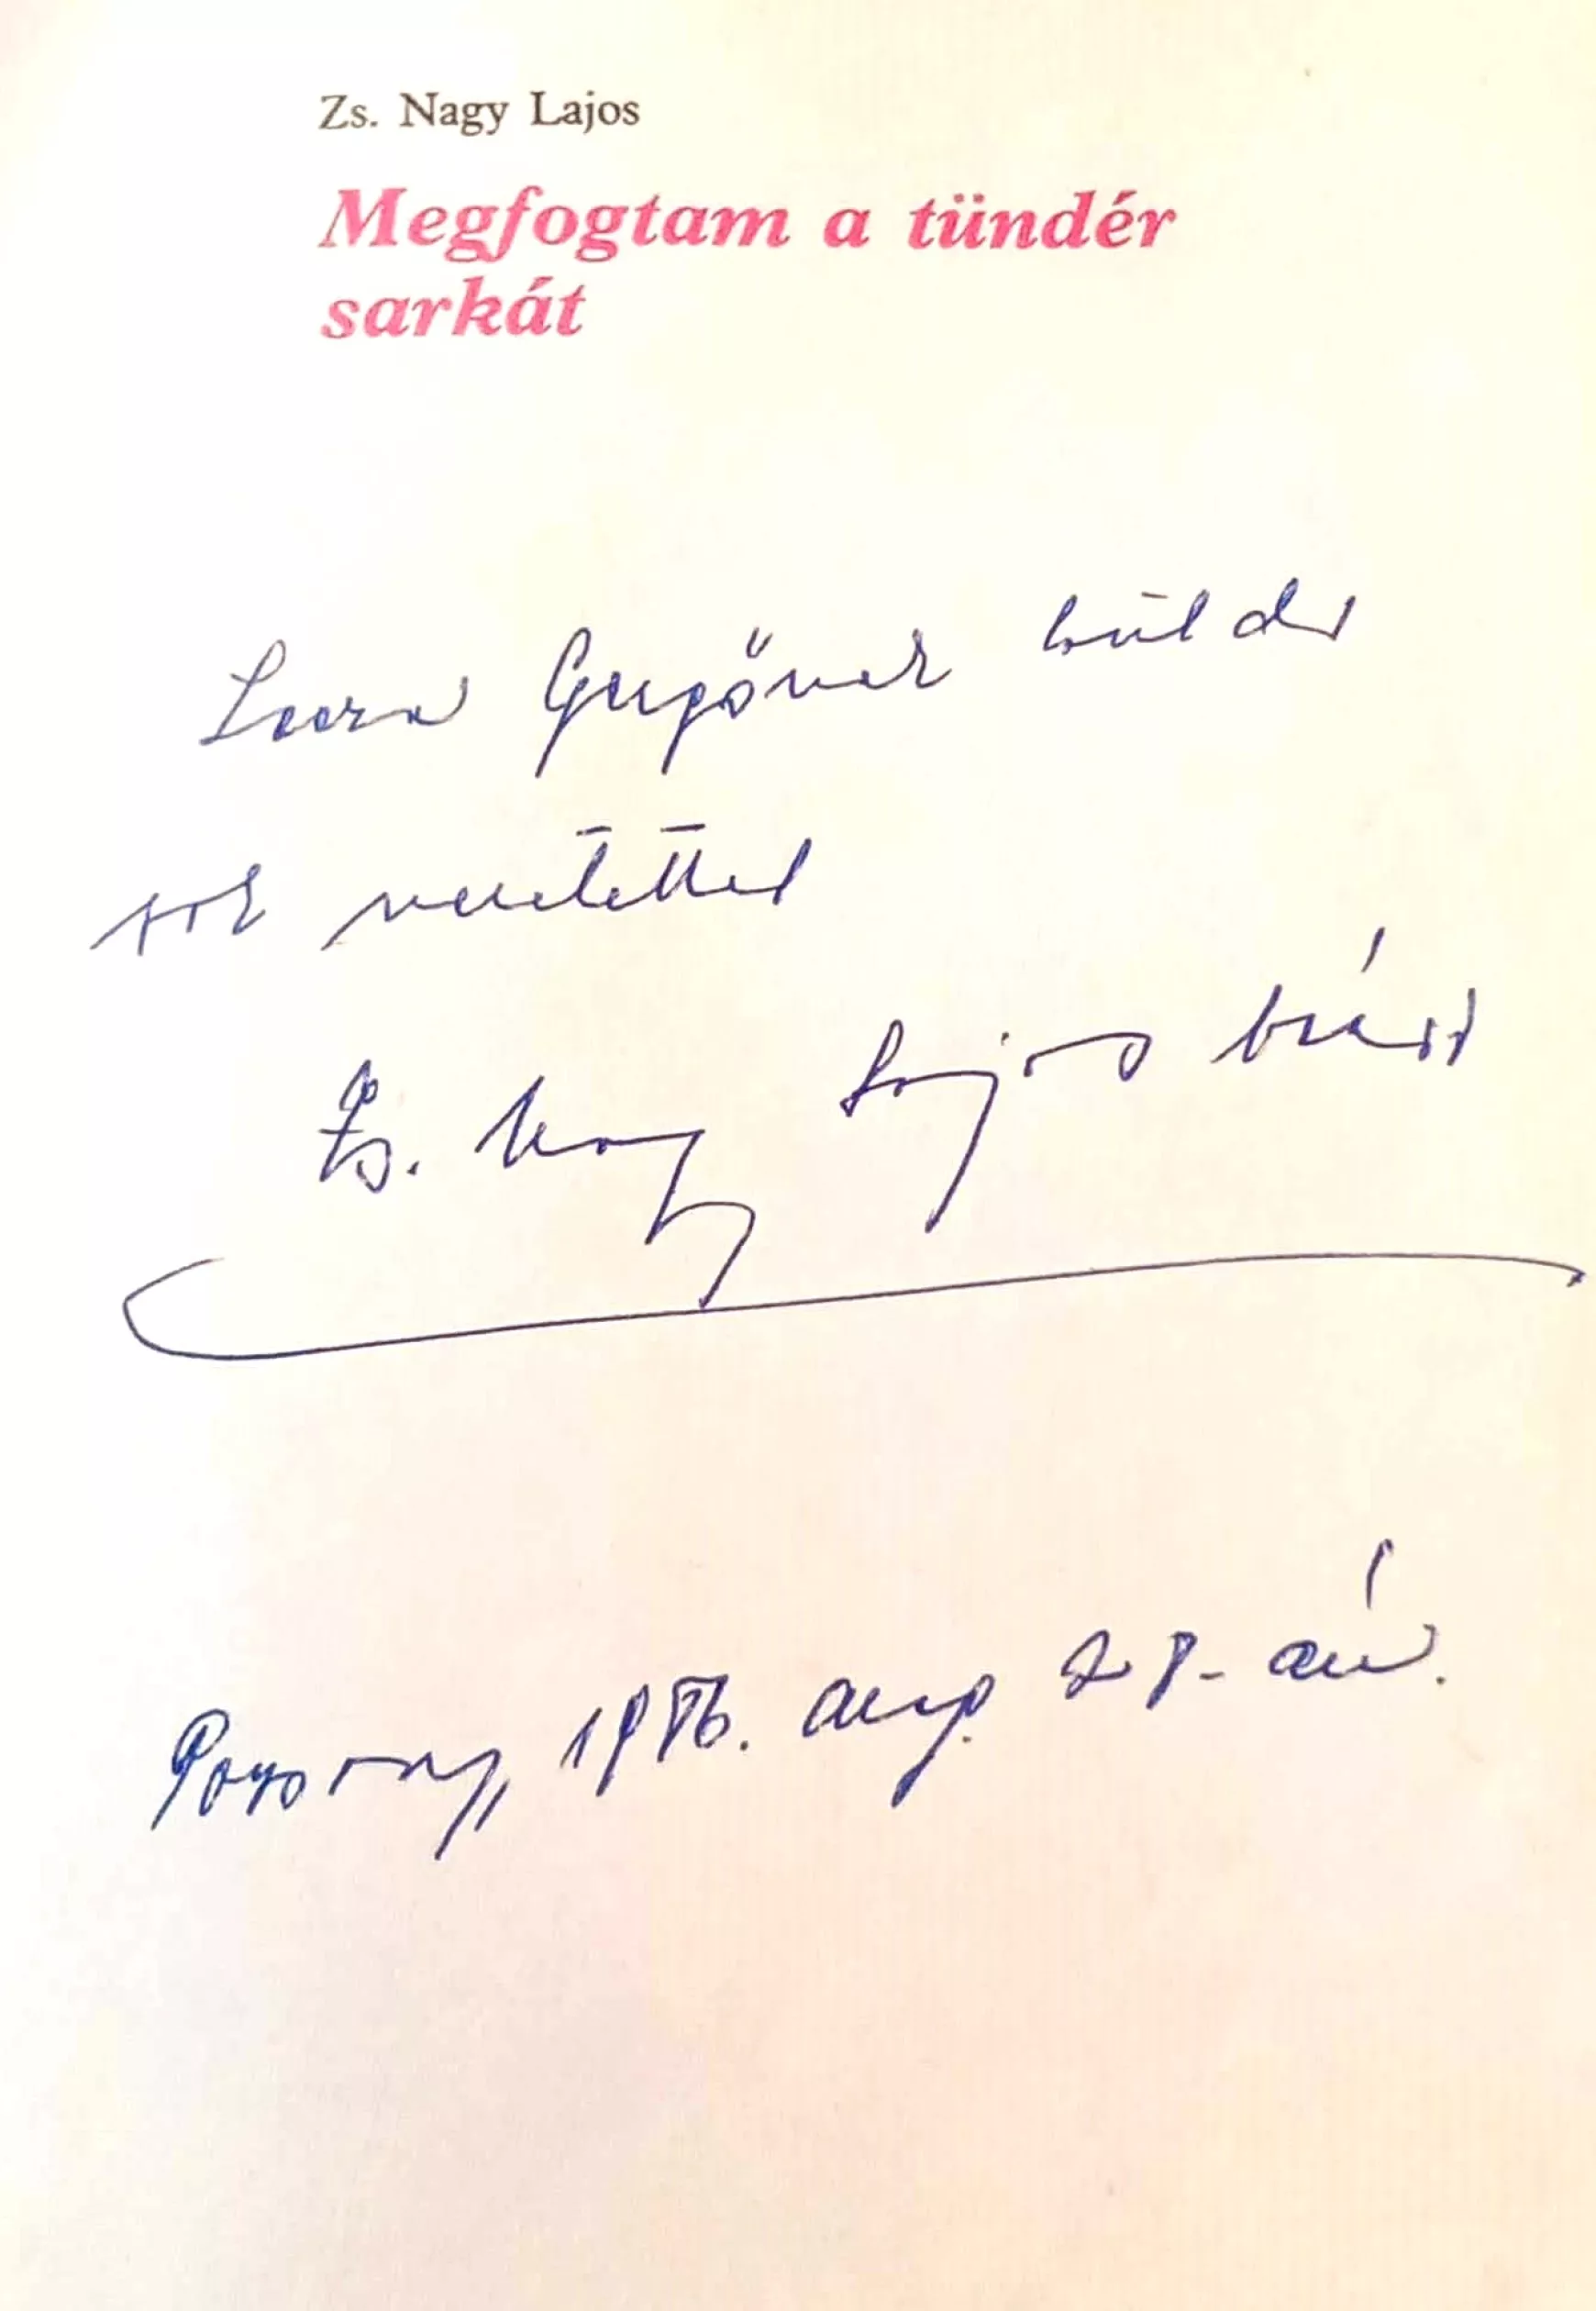 Zs. Nagy Lajos
Megfogtam a tündér
sarkát
Gergőnek küldi
sok szeretettel
Zs. Nagy Lajos bácsi
Pozsony, 1986. aug. 28-án.